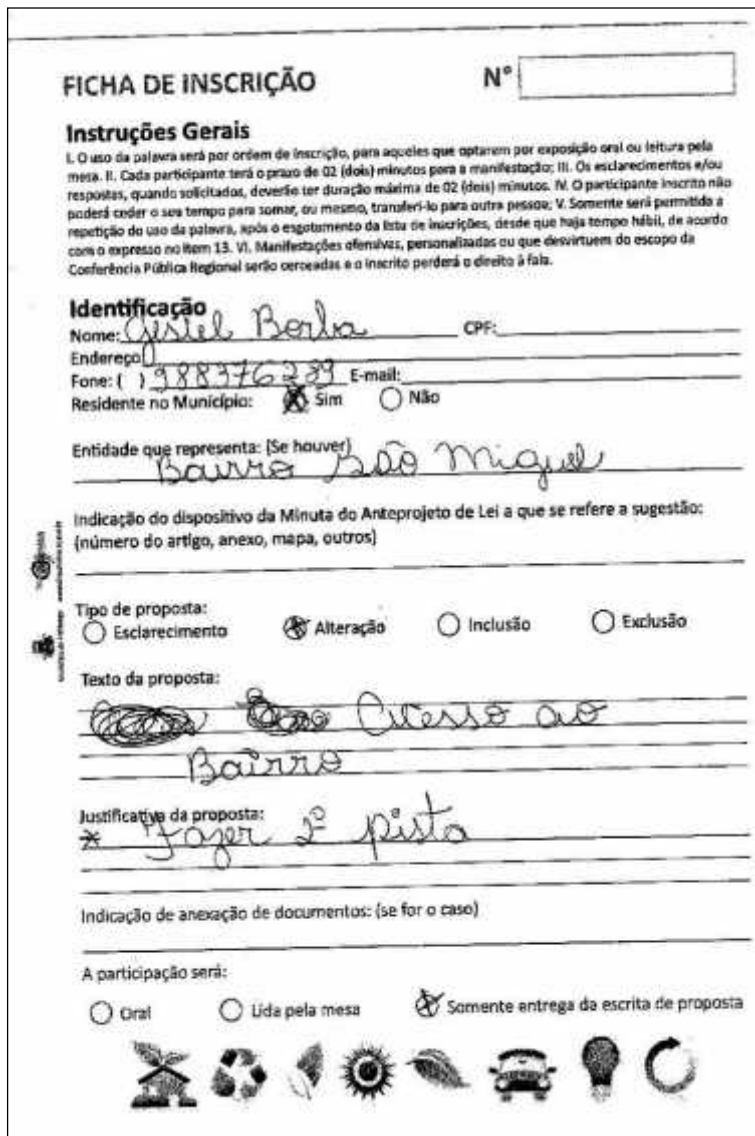 FICHA DE INSCRIÇÃO
N°
Instruções Gerais
I. O uso da palavra será por ordem de inscrição, para aqueles que optarem por exposição oral ou leitura pela
mesa. II. Cada participante terá o prazo de 02 (dois) minutos para a manifestação; III. Os esclarecimentos e/ou
respostas, quando solicitados, deverão ter duração máxima de 02 (dois) minutos. IV. O participante inscrito não
poderá ceder o seu tempo para somar, ou mesmo, transferi-lo para outra pessoa; V. Somente será permitida a
repetição do uso da palavra, após o esgotamento da lista de inscrições, desde que haja tempo hábil, de acordo
com o expresso no item 13. VI. Manifestações ofensivas, personalizadas ou que desvirtuem do escopo da
Conferência Pública Regional serão cerceadas e o inscrito perderá o direito à fala.
Identificação
Nome: Berba CPF:
Endereço
Fone: ( ) 988376289 E-mail:
Residente no Município: Sim Não
Entidade que representa: (Se houver)
Bairro São Miguel
Indicação do dispositivo da Minuta do Anteprojeto de Lei a que se refere a sugestão:
(número do artigo, anexo, mapa, outros)
Tipo de proposta:
Esclarecimento Alteração Inclusão Exclusão
Texto da proposta:
Acesso ao
Bairro
Justificativa da proposta:
* Fazer 2ª pista
Indicação de anexação de documentos: (se for o caso)
A participação será:
Oral Lida pela mesa Somente entrega da escrita de proposta